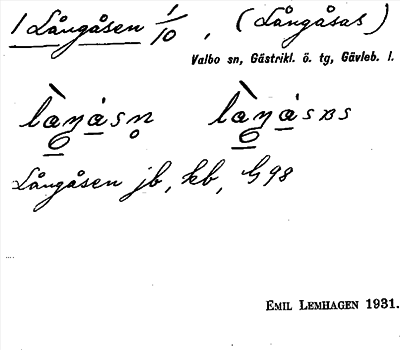 1 Långåsen 1/10, (Långåsas)
Valbo sn, Gästrikl. ö. tg, Gävleb. l.
Långåsen jb, kb, G98
EMIL LEMHAGEN 1931.